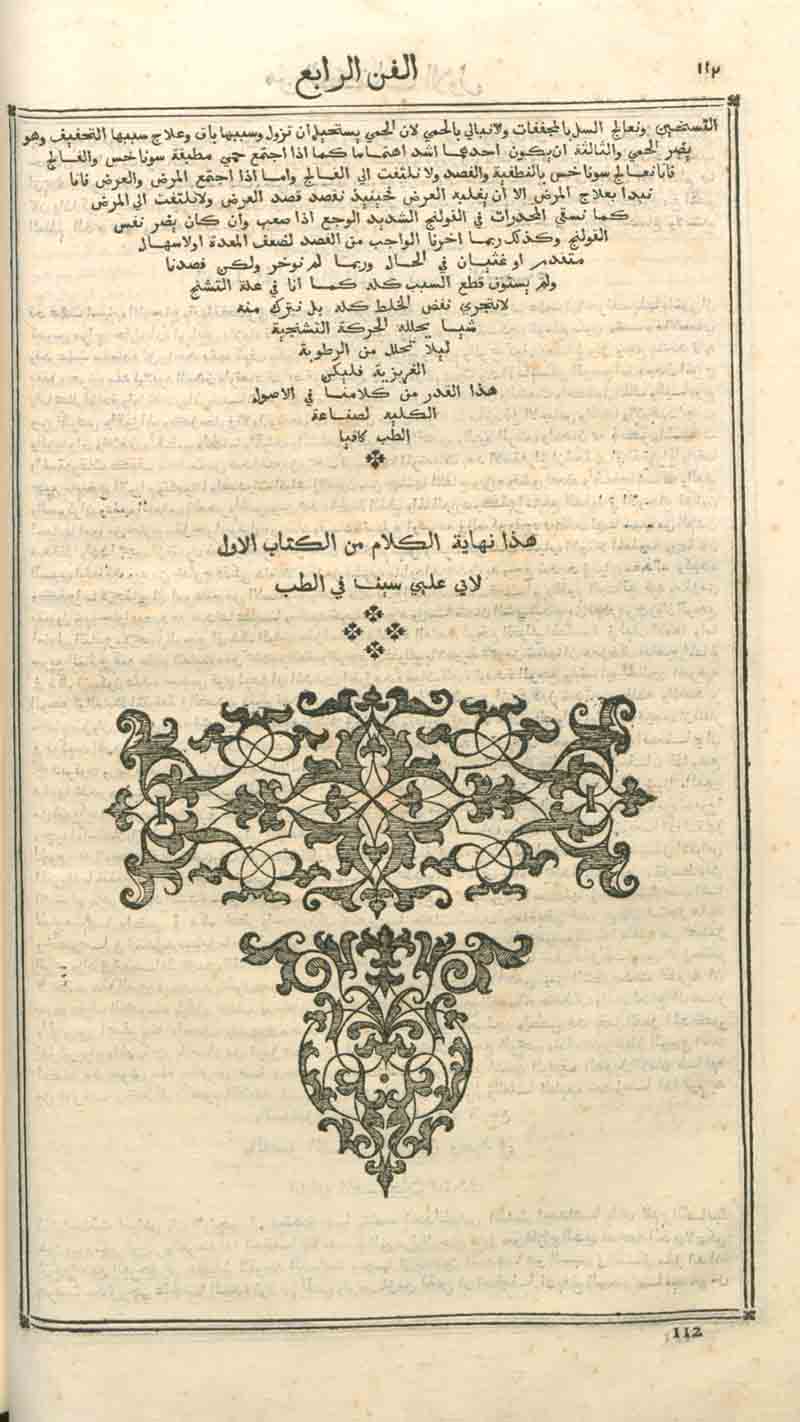 ١١٢
الفن الرابع
التسخين ونعالج السل بالمجففات ولا نبالي بالحمي لان الحمي يستحيل ان تزول وسببها باق وعلاج سببها التجفيف وهو
يضر الحمي والثالثة ان يكون احدهما اشد اهتماما كما اذا اجتمع حمي مطبقة سوناخس والفالج
فانا نعالج سوناخس بالتطفية والفصد ولا نلتفت الي الفالج واما اذا اجتمع المرض والعرض فانا
نبدا بعلاج المرض الا ان يغلبه العرض فحينيذ نقصد قصد العرض ولا نلتفت الي المرض
كما نسقي المخدرات في القولنج الشديد الوجع اذا صعب وان كان يضر نفس
القولنج وكذلك ربما اخرنا الواجب من الفصد لضعف المعدة او لاسهال
متقدم او غثيان في الحال وربما لم نوخر ولكن فصدنا
ولم يستوف قطع السبب كله كما انا في علة التشنج
لا نتحري نفض الخلط كله بل نترك منه
شيا يحلله الحركة التشنجية
ليلا تحلل من الرطوبة
الغريزية فليكن
هذا القدر من كلامنا في الاصول
الكلية لصناعة
الطب كافيا
هذا نهاية الكلام من الكتاب الاول
لابي علي سينا في الطب
112